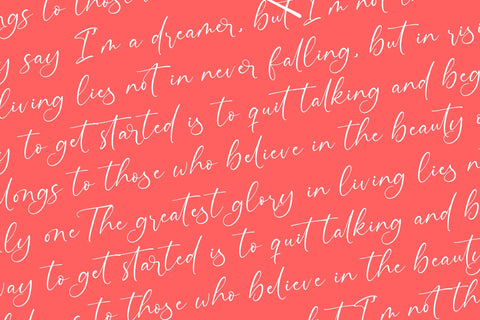 ngs to those
y say I'm a dreamer, but I'm not t
living lies not in never falling, but in risi
y to get started is to quit talking and beg
longs to those who believe in the beauty o
ly one The greatest glory in living lies n
way to get started is to quit talking and b
s to those who believe in the beauty
but I'm not th